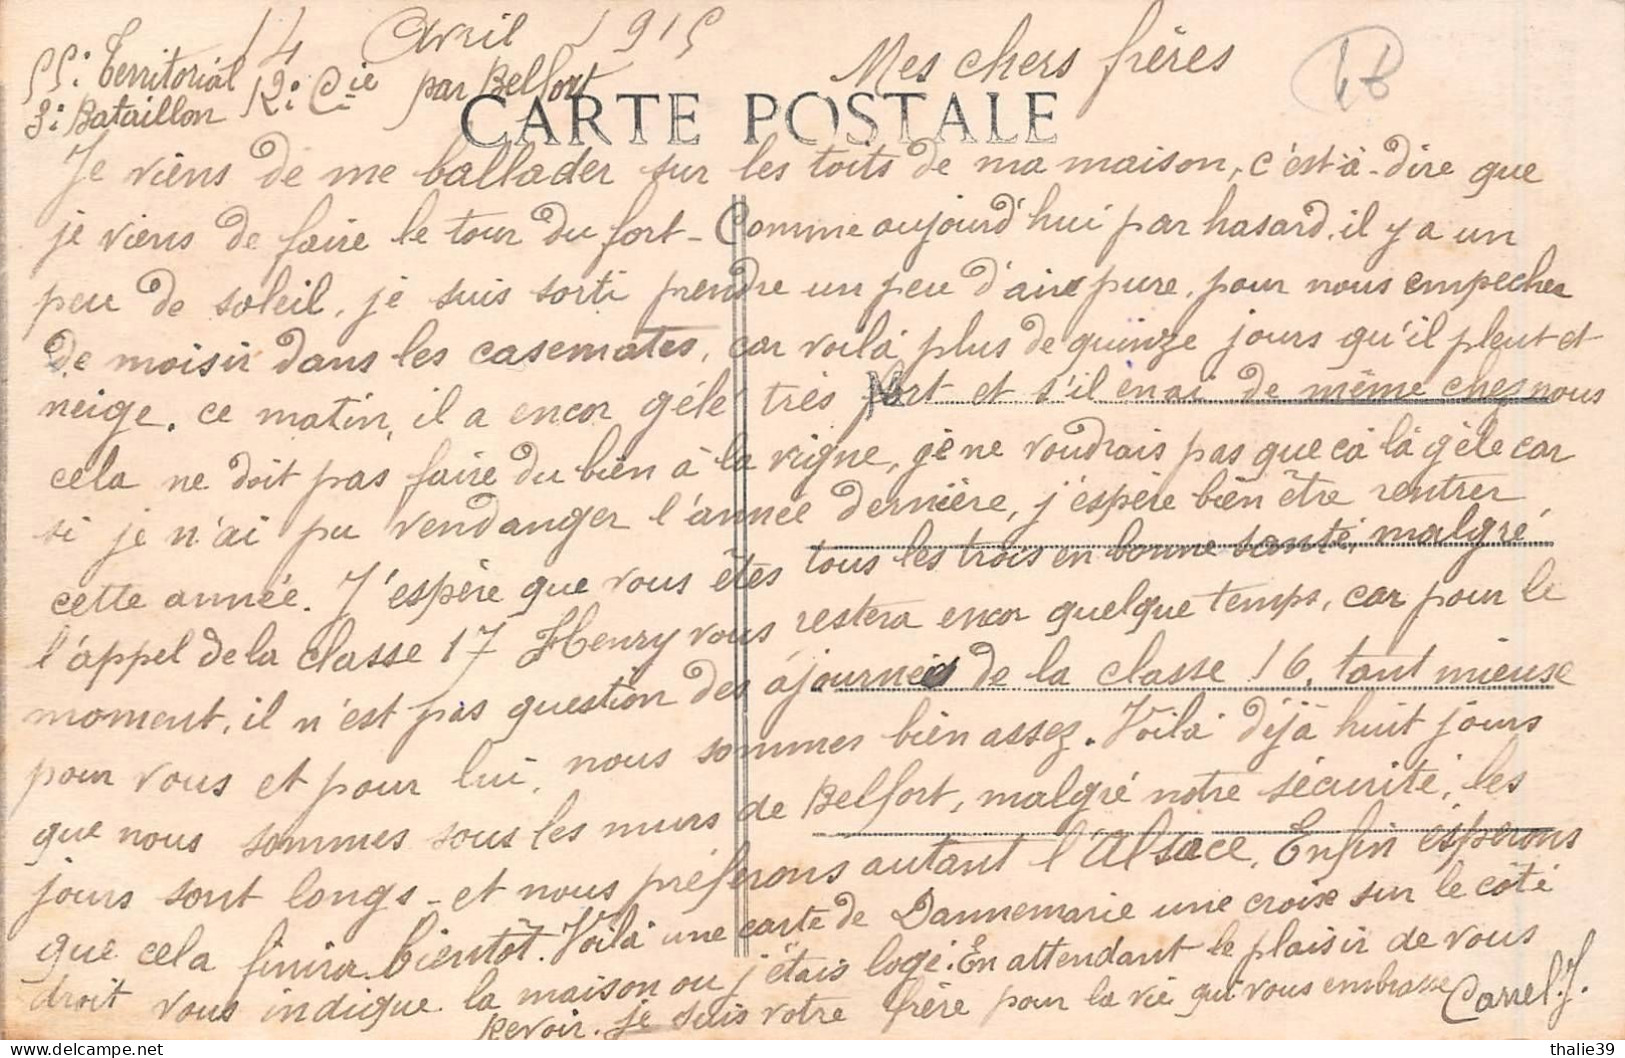 14 Avril 1915
55e Territorial
3e Bataillon 12e Cie par Belfort
Mes chers frères
CARTE POSTALE
Je viens de me ballader sur les toits de ma maison, c'est-à-dire que
je viens de faire le tour du fort - Comme aujourd'hui par hasard, il y a un
peu de soleil, je suis sorti prendre un peu d'aire pure, pour nous empecher
de moisir dans les casemates, car voilà plus de quinze jours qu'il pleut et
neige. ce matin, il a encor gélé très fort et s'il en ai de même chez nous
cela ne doit pas faire du bien à la vigne, je ne voudrais pas que ca là gèle car
si je n'ai pu vendanger l'année dernière, j'espère bien être rentrer
cette année. J'espère que vous êtes tous les trois en bonne santé, malgré
l'appel de la classe 17 Henry vous restera encor quelque temps, car pour le
moment, il n'est pas question des ajournés de la classe 16, tant mieuse
pour vous et pour lui, nous sommes bien assez. Voilà déjà huit jours
que nous sommes sous les murs de Belfort, malgré notre sécurité, les
jours sont longs - et nous préferons autant l'Alsace. Enfin espérons
que cela finira bientôt. Voilà une carte de Dannemarie une croix sur le côté
droit vous indique la maison ou j'étais logé. En attendant le plaisir de vous
revoir. je suis votre frère pour la vie qui vous embrasse Carrel. J.
thalie39